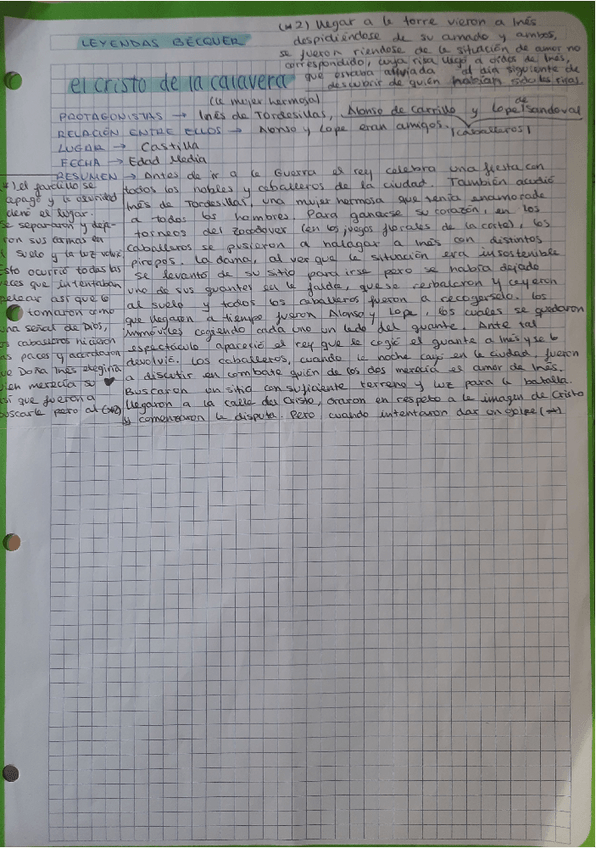 LEYENDAS BÉCQUER
(*2) llegar a la torre vieron a Inés
despidiéndose de su amado y ambos,
se fueron riendose de la situación de amor no
correspondido, cuya risa llegó a oídos de Inés,
que estaría aliviada al día siguiente de
descubrir de quién habían sido las risas.
el cristo de la calavera
(la mujer hermosa)
PROTAGONISTAS → Inés de Tordesillas, Alonso de Carrillo y Lope de Sandoval
(caballeros)
RELACIÓN ENTRE ELLOS → Alonso y Lope eran amigos.
LUGAR → Castilla
FECHA → Edad Media
RESUMEN → Antes de ir a la Guerra el rey celebra una fiesta con
todos los nobles y caballeros de la ciudad. También acudió
Inés de Tordesillas, una mujer hermosa que tenía enamorado
a todos los hombres. Para ganarse su corazón, en los
torneos del Zocodover (en los juegos florales de la corte), los
caballeros se pusieron a halagar a Inés con distintos
piropos. La dama, al ver que la situación era insostenible
se levantó de su sitio para irse pero se había dejado
uno de sus guantes en la falda, que se resbalaron y cayeron
al suelo y todos los caballeros fueron a recogérselo. Los
que llegaron a tiempo fueron Alonso y Lope, los cuales se quedaron
inmóviles cogiendo cada uno un lado del guante. Ante tal
espectáculo apareció el rey que se cogió el guante a Inés y se lo
devolvió. Los caballeros, cuando la noche cayó en la ciudad, fueron
a discutir en combate quién de los dos merecía el amor de Inés.
Buscaron un sitio con suficiente terreno y luz para la batalla.
Llegaron a la calle del Cristo, oraron en respeto a la imagen de Cristo
y comenzaron la disputa. Pero cuando intentaron dar un golpe (*)
*) el farolillo se
apagó y la oscuridad
llenó el lugar.
se separaron y deja-
ron sus armas en
suelo y la luz volvió.
Esto ocurrió todas las
veces que intentaban
pelear así que lo
tomaron como
una señal de Dios,
los caballeros hicieron
las paces y acordaron
que Doña Inés elegiría
quien merecía su ♥
así que fueron a
buscarla pero al (*2)